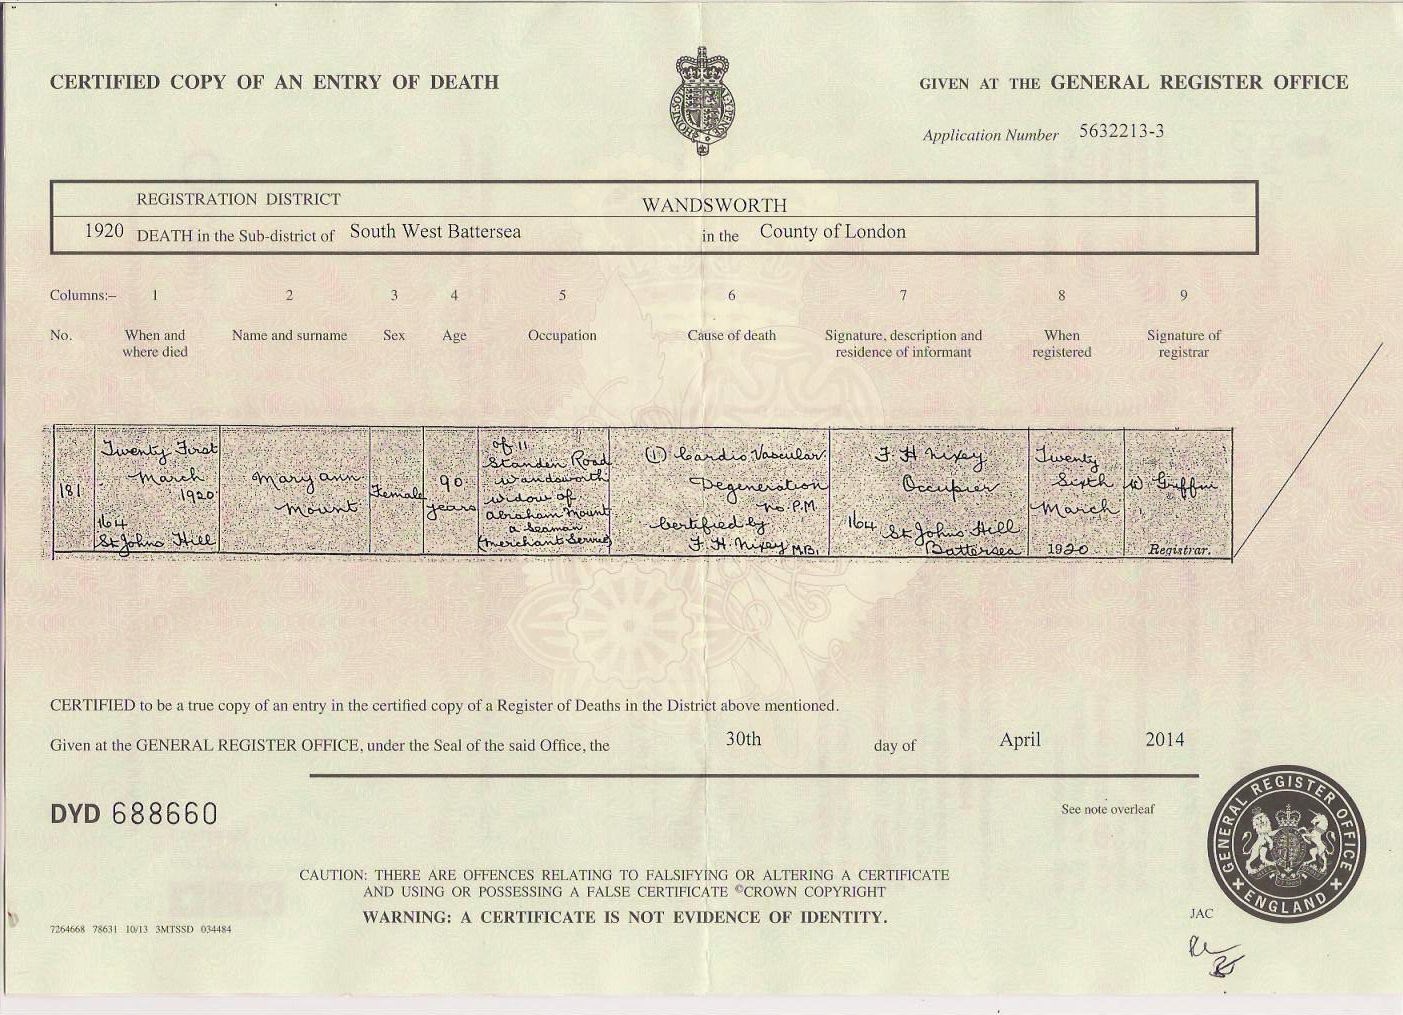 CERTIFIED COPY OF AN ENTRY OF DEATH
GIVEN AT THE GENERAL REGISTER OFFICE
Application Number 5632213-3
REGISTRATION DISTRICT WANDSWORTH
1920 DEATH in the Sub-district of South West Battersea in the County of London
Columns:– 1 2 3 4 5 6 7 8 9
No. When and where died Name and surname Sex Age Occupation Cause of death Signature, description and residence of informant When registered Signature of registrar
181
Twenty First
March
1920
164
St Johns Hill
Mary ann
Mount
Female
90
years
of 11
Standen Road
Wandsworth
widow of
Abraham Mount
a Seaman
(Merchant Service)
(1) Cardio Vascular
Degeneration
No P.M.
Certified by
F. H. Nixey M.B.
F H Nixey
Occupier
164
St Johns Hill
Battersea
Twenty
Sixth
March
1920
W Griffin
Registrar.
CERTIFIED to be a true copy of an entry in the certified copy of a Register of Deaths in the District above mentioned.
Given at the GENERAL REGISTER OFFICE, under the Seal of the said Office, the 30th day of April 2014
DYD 688660
See note overleaf
CAUTION: THERE ARE OFFENCES RELATING TO FALSIFYING OR ALTERING A CERTIFICATE
AND USING OR POSSESSING A FALSE CERTIFICATE ©CROWN COPYRIGHT
WARNING: A CERTIFICATE IS NOT EVIDENCE OF IDENTITY.
GENERAL REGISTER OFFICE
ENGLAND
JAC
7264668 78631 10/13 3MTSSD 034484